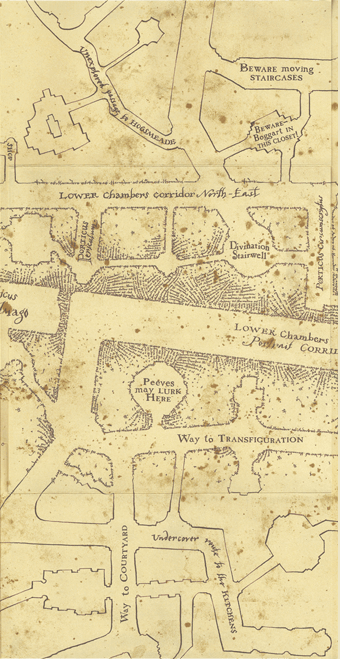 Unexplored passage to HOGSMEADE
BEWARE moving
STAIRCASES
BEWARE
Boggart in
THIS CLOSET!
LOWER Chambers corridor North-East
Porticus
Divination
Stairwell
PORTICUS
LOWER Chambers
Peeves
may LURK
HERE
Way to TRANSFIGURATION
Way to COURTYARD
Undercover route to the KITCHENS.